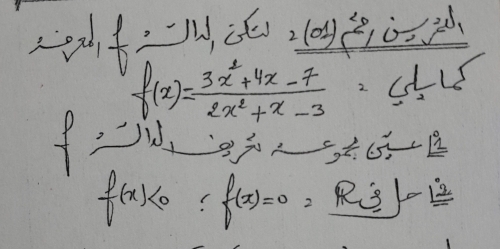 التمرين رقم (01): لتكن الدالة f المعرفة
كما يلي: f(x) = (3x² + 4x - 7) / (2x² + x - 3)
1) عيّن مجموعة تعريف الدالة f
2) حل في ℝ: f(x) = 0 ; f(x) < 0